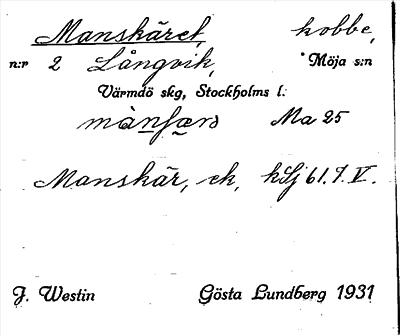 Manskäret, kobbe,
n:r 2 Långvik, Möja s:n
Värmdö skg, Stockholms l:
Ma 25
Manskär, ek, 61. I. V.
J. Westin Gösta Lundberg 1931